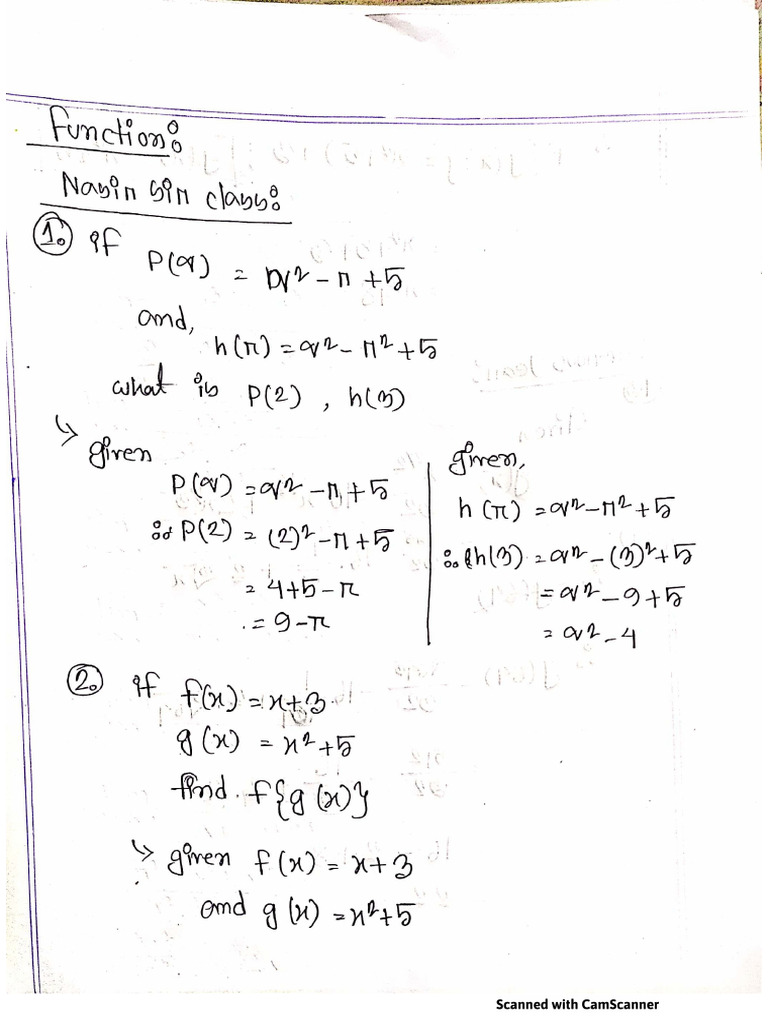 Function:
Nasir sir class:
1. if
P(α) = α² - π + 5
and,
h(π) = α² - π² + 5
what is P(2), h(3)
↳ given
P(α) = α² - π + 5
∴ P(2) = (2)² - π + 5
= 4+5-π
= 9-π
given,
h(π) = α² - π² + 5
∴ h(3) = α² - (3)² + 5
= α² - 9 + 5
= α² - 4
2. if f(x) = x+3
g(x) = x²+5
find f{g(x)}
↳ given f(x) = x+3
and g(x) = x²+5
Scanned with CamScanner